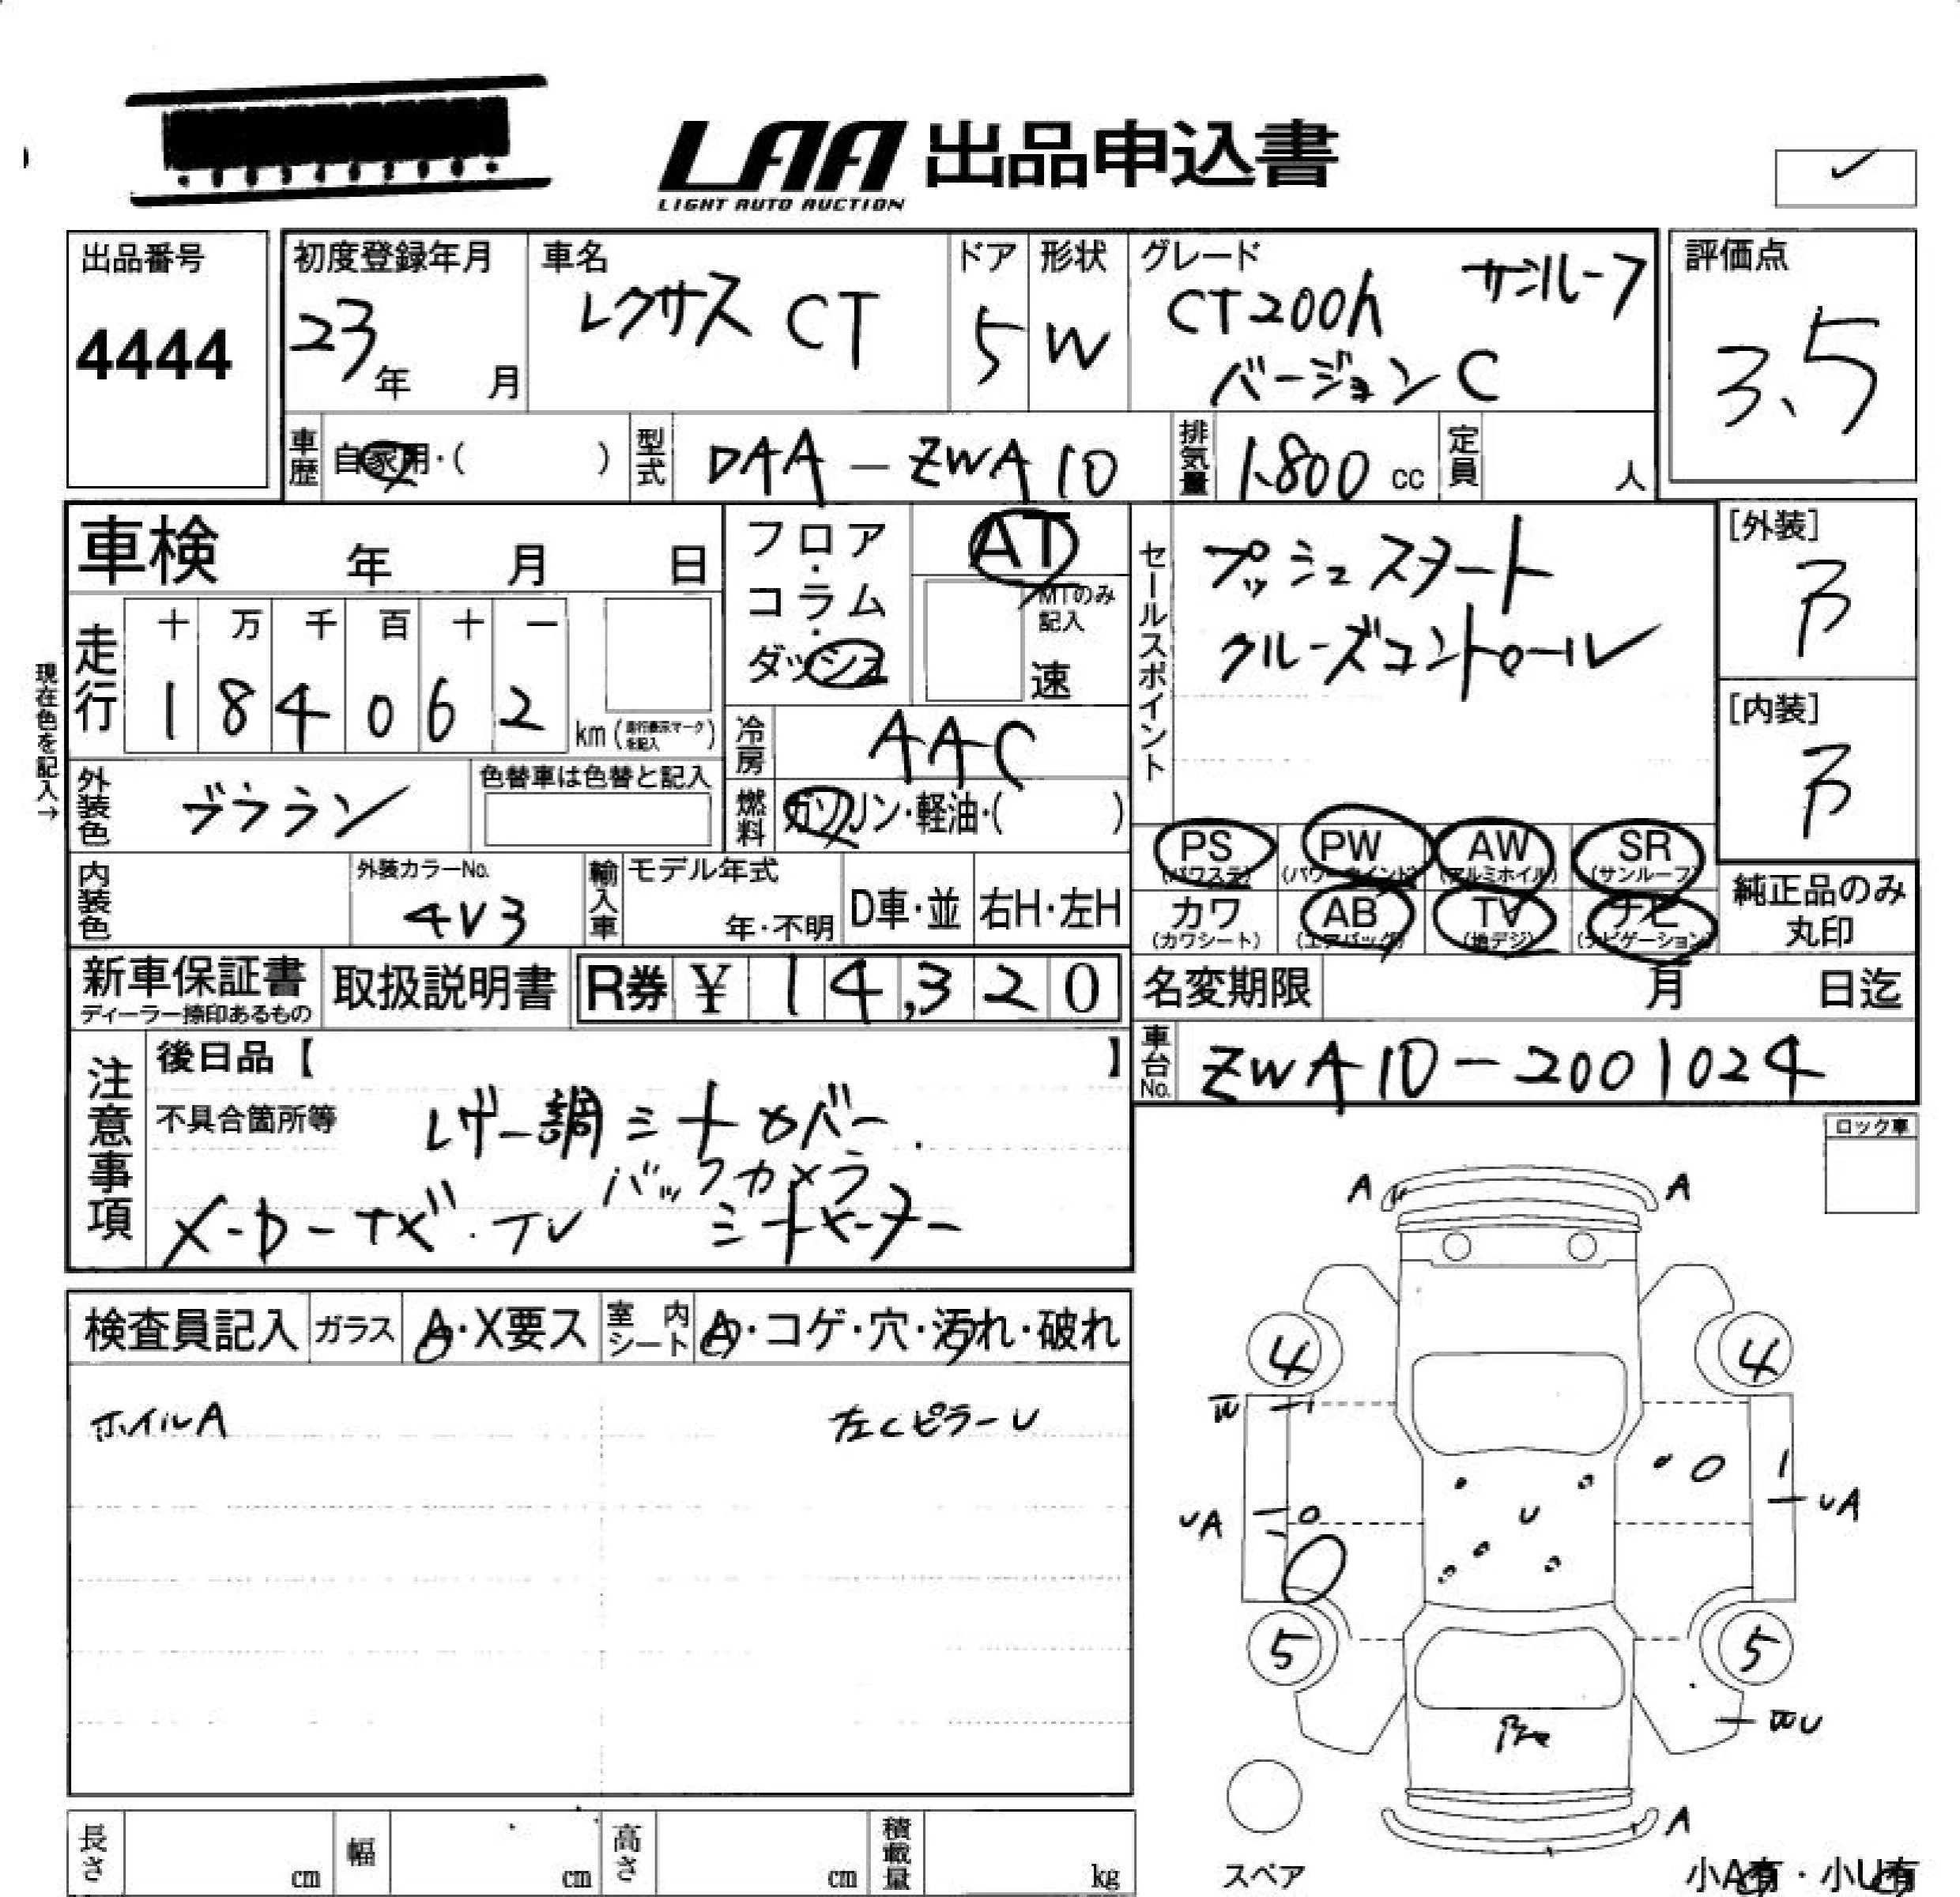 LAA 出品申込書
LIGHT AUTO AUCTION
出品番号
4444
初度登録年月
23年 月
車名
レクサス CT
ドア
5
形状
W
グレード
CT200h サンルーフ
バージョンC
評価点
3.5
車歴 自家用・( )
型式 DAA-ZWA10
排気量 1.800 cc
定員 人
車検 年 月 日
走行
十 万 千 百 十 一
1 8 4 0 6 2 km (走行表示マークを記入)
現在色を記入→
フロア・コラム・ダッシュ
AT
MTのみ記入
速
冷房 AAC
燃料 ガソリン・軽油・( )
セールスポイント
プッシュスタート
クルーズコントロール
[外装]
B
[内装]
B
外装色 ブラウン
色替車は色替と記入
内装色
外装カラーNo.
4V3
輸入車
モデル年式
年・不明
D車・並
右H・左H
PS (パワステ)
PW (パワーウインド)
AW (アルミホイル)
SR (サンルーフ)
カワ (カワシート)
AB (エアバッグ)
TV (地デジ)
ナビ (ナビゲーション)
純正品のみ
丸印
新車保証書
ディーラー捺印あるもの
取扱説明書
R券 ¥ 1 4,3 2 0
名変期限 月 日迄
車台No. ZWA10-2001024
注意事項
後日品【 】
不具合箇所等
レザー調シートカバー
バックカメラ
メーカーナビ・TV シートヒーター
ロック車
検査員記入
ガラス A・X要ス
室内シート A・コゲ・穴・汚れ・破れ
ホイルA
左Cピラー U
A A
4 4
W
UA
UA
U
5 5
WU
A
スペア
小A有・小U有
長さ cm
幅 cm
高さ cm
積載量 kg